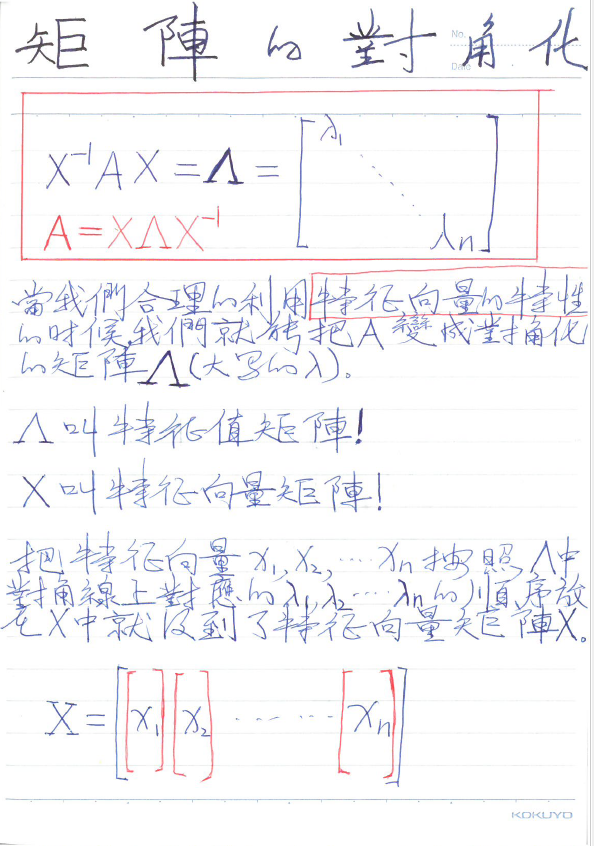 矩陣的對角化
No.
Date
X⁻¹AX = Λ = [λ₁ ⋱ λₙ]
A = XΛX⁻¹
當我們合理的利用特征向量的特性
的时候,我們就能把A變成對角化
的矩陣Λ(大写的λ)。
Λ叫特征值矩陣!
X叫特征向量矩陣!
把特征向量x₁,x₂,⋯xₙ按照Λ中
對角線上對應的λ₁,λ₂⋯λₙ的順序放
在X中就得到了特征向量矩陣X。
X = [[x₁] [x₂] ⋯⋯ [xₙ]]
KOKUYO